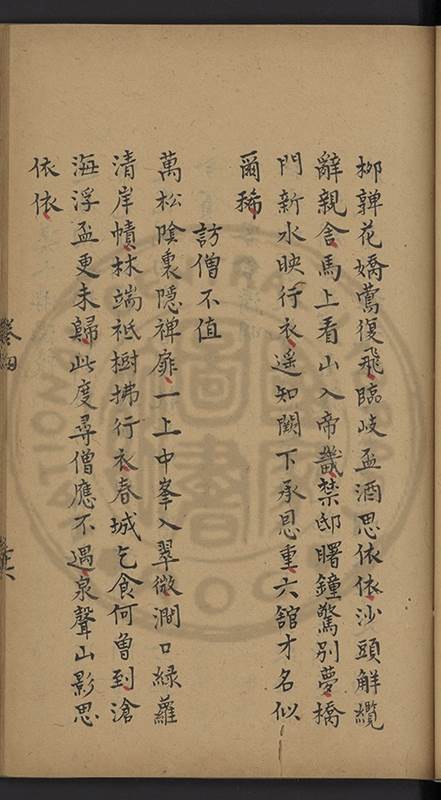 柳嚲花嬌鶯復飛臨岐盃酒思依依沙頭觧纜
辭親舍馬上看山入帝畿禁邸曙鐘驚别夢橋
門新水映行衣遥知闕下承恩重六舘才名似
爾稀
訪僧不值
萬松陰裏隱禅扉一上中峯入翠微澗口綠蘿
清岸幘林端祇樹拂行衣春城乞食何曽到滄
海浮盃更未歸此度尋僧應不遇泉聲山影思
依依